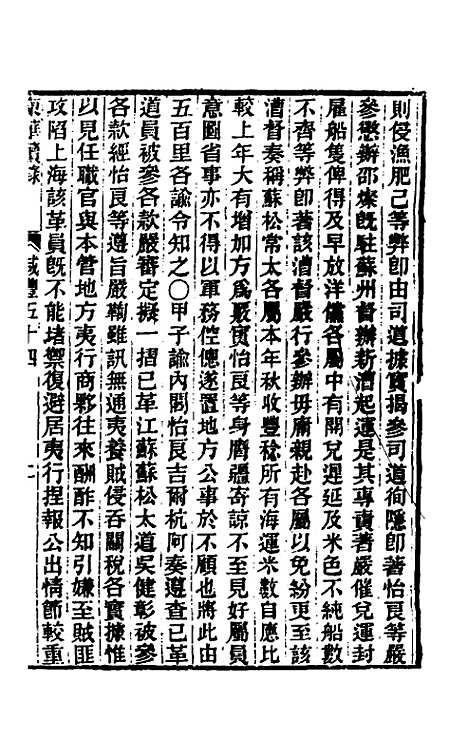 則侵漁肥己等弊卽由司道據實揭參司道徇隱卽著怡良等嚴
參懲辦邵燦旣駐蘇州督辦新漕起運是其專責著嚴催兌運封
雇船隻俾得及早放洋儻各屬中有開兌遲延及米色不純船數
不齊等弊卽著該漕督嚴行參辦毋庸親赴各屬以免紛更至該
漕督奏稱蘇松常太各屬本年秋收豐稔所有海運米數自應比
較上年大有增加方爲嚴實怡良等身膺疆寄諒不至見好屬員
意圖省事亦不得以軍務倥傯遂置地方公事於不顧也將此由
五百里各諭令知之〇甲子諭內閣怡良吉爾杭阿奏遵查已革
道員被參各款嚴審定擬一摺已革江蘇蘇松太道吳健彰被參
各款經怡良等遵旨嚴鞫雖訊無通夷養賊侵吞關稅各實據惟
以見任職官與本管地方夷行商夥往來酬酢不知引嫌至賊匪
攻陷上海該革員旣不能堵禦復避居夷行捏報公出情節較重
東華續錄 咸豐五十四 二